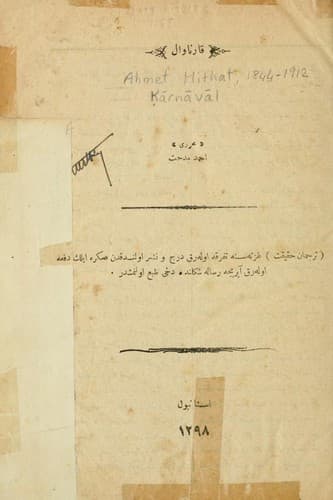 قارناوال
Ahmet Mithat, 1844-1912
Ḳārnāvāl
« محرری »
احمد مدحت
( ترجمان حقیقت ) غزته‌سنه تفرقه اوله‌رق درج و نشر اولندقدن صکره ایلك دفعه
اوله‌رق آیریجه رساله شکلنده دخی طبع اولنمشدر .
استانبول
١٢٩٨